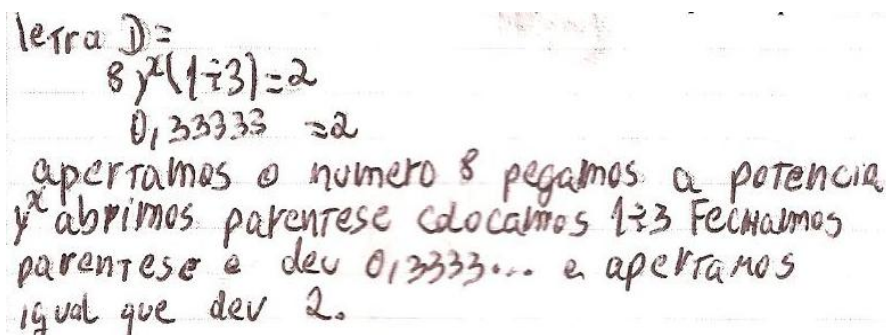 letra D=
8 yˣ(1÷3)=2
0,33333 =2
apertamos o numero 8 pegamos a potencia
yˣ abrimos parentese colocamos 1÷3 Fechamos
parentese e deu 0,3333... e apertamos
igual que deu 2.